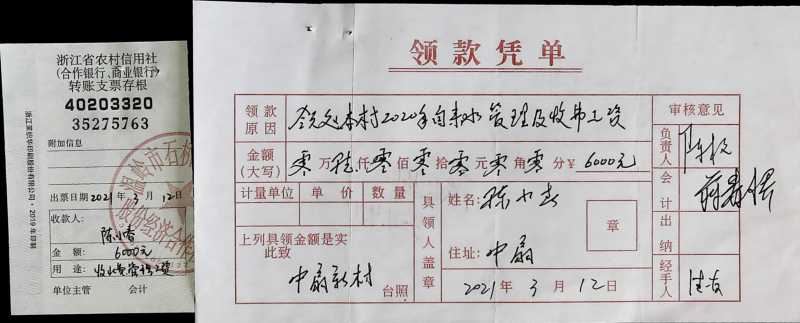 浙江省农村信用社
(合作银行、商业银行)
转账支票存根
40203320
35275763
附加信息
出票日期 2021年 3月 12日
收款人:
陈小香
金 额: 6000元
用 途: 收水费管理工资
单位主管 会计
领款凭单
领款原因 领到本村2020年自来水管理及收费工资
金额(大写) 零万陆仟零佰零拾零元零角零分 ¥ 6000元
计量单位 单价 数量
上列具领金额是实
此致
中扇新村 台照
具领人盖章
姓名: 陈小香
章
住址: 中扇
2021年 3月 12日
审核意见
负责人
会计
出纳
经手人